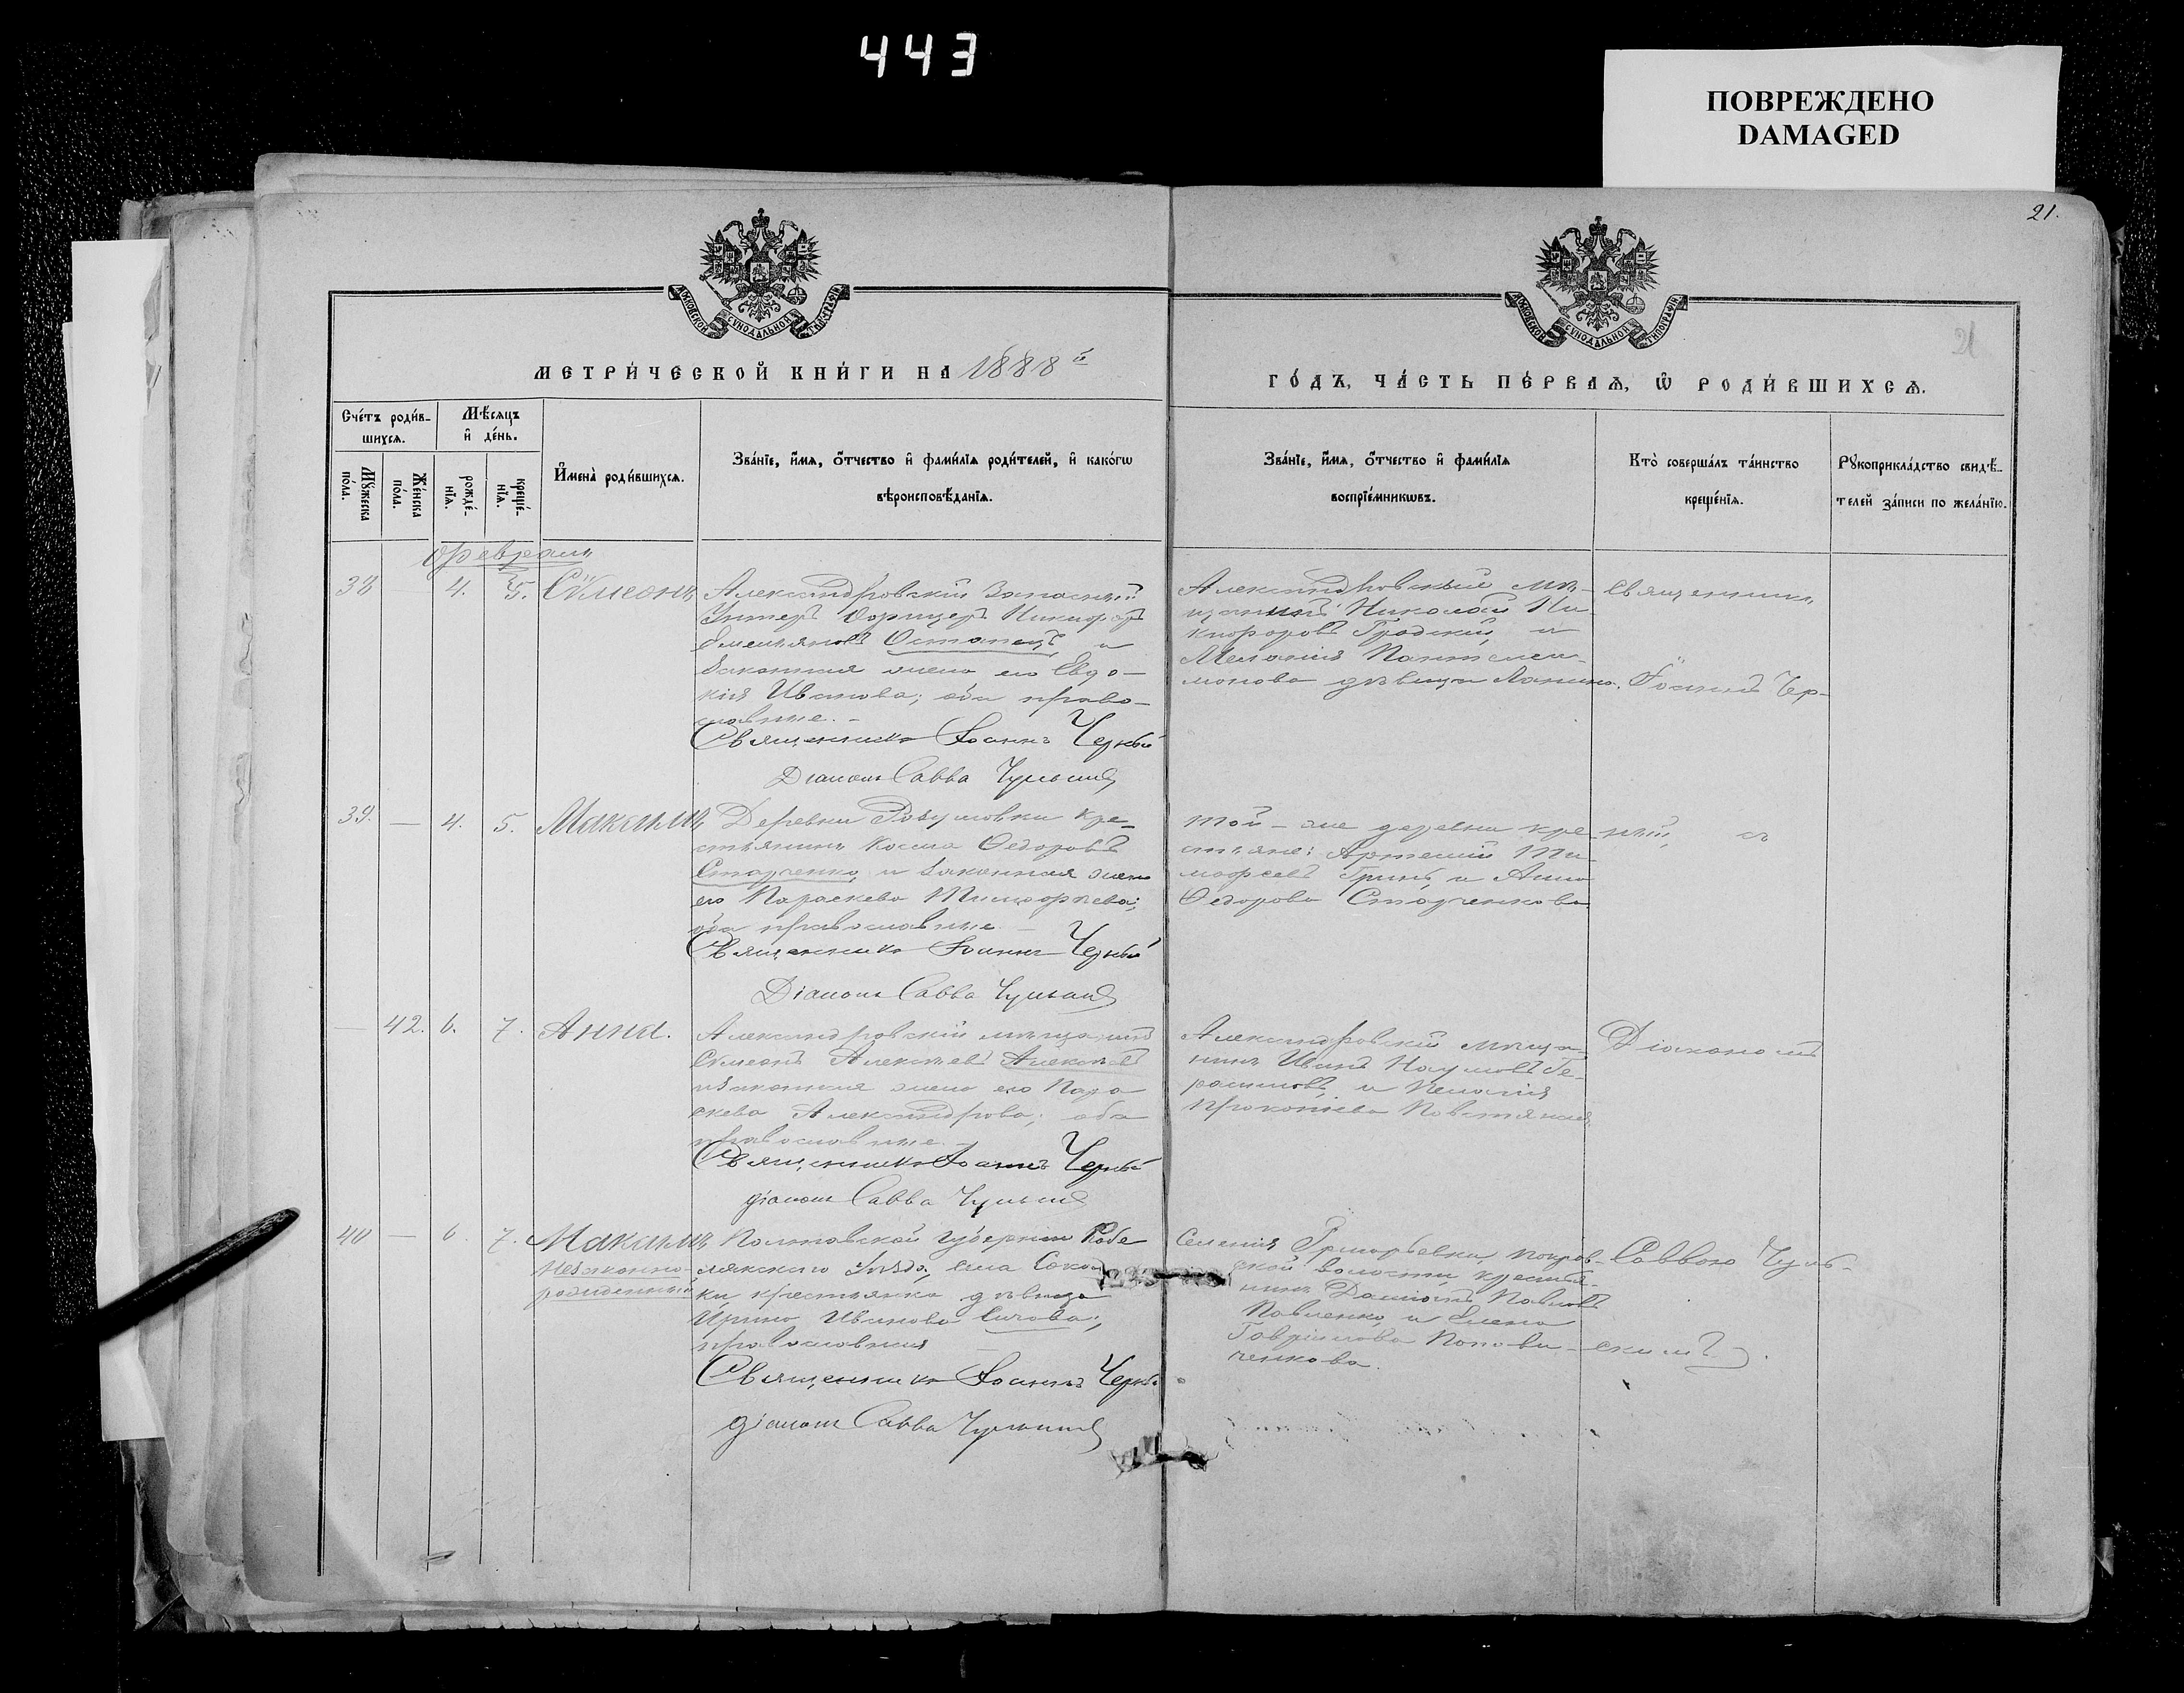 443
ПОВРЕЖДЕНО
DAMAGED
21.
21
МОСКОВСКОЙ СѴНОДАЛЬНОЙ ТИПОГРАФІИ
МОСКОВСКОЙ СѴНОДАЛЬНОЙ ТИПОГРАФІИ
МЕТРИ́ЧЕСКОЙ КНИ́ГИ НА 1888й
ГО́ДЪ, ЧА́СТЬ ПЕ́РВАѦ, Ѡ҆ РОДИ́ВШИХСѦ.
Сче́тъ роди́в-
шихсѧ.
Мꙋ́жеска
по́ла.
Же́нска
по́ла.
Мѣ́сѧцъ
и҆ де́нь.
рожде́-
нїѧ.
креще́-
нїѧ.
И҆мена̀ роди́вшихсѧ.
Зва́нїе, и҆́мѧ, ѻ҆́тчество и҆ фами́лїѧ роди́телей, и҆ како́гѡ
вѣроисповѣ́данїѧ.
Зва́нїе, и҆́мѧ, ѻ҆́тчество и҆ фами́лїѧ
воспрїе́мникѡвъ.
Кто̀ соверша́лъ та́инство
креще́нїѧ.
Рꙋкоприкла́дство свидѣ́-
телей за́писи по жела́нїю.
Февраль
38 — 4. 5. Сѵмеонъ
Александровскій Запасный
Унтеръ Офицеръ Никифоръ
Емельяновъ Остапецъ, и
Законная жена его Евдо-
кія Иванова; оба право-
славные. —
Священникъ Іоаннъ Черный
Діаконъ Савва
Александровскіе мѣ-
щанинъ Николай Ни-
кифоровъ Градскій, и
Меланія Пантелеи-
монова дѣвица
Священник
Іоаннъ Чер-
39. — 4. 5. Максимъ
Деревни Розумовки кре-
стьянинъ Косма Ѳедоровъ
и законная жена
его Параскева Тимоѳеева;
оба православные. —
Священникъ Іоаннъ Черный
Діаконъ Савва
той-же деревни кре-
стьяне: Артемій Ти-
моѳеевъ Гринь, и Анна
Ѳедорова
ный, съ
— 42. 6. 7. Анна.
Александровскій мѣщанинъ
Сѵмеонъ Алексѣевъ Алексѣевъ
и Законная жена его Пара
скева Александрова; оба
православные. —
Священникъ Іоаннъ Черный
діаконъ Савва
Александровскій мѣща-
нинъ Иванъ Наумовъ Ге-
расимовъ, и Пелагія
Прокопіева
Діакономъ
40 — 6. 7. Максимъ
Незаконно-
рожденный
Полтавской губерніи Кобе
лякского Уѣзда, села
ки крестьянка дѣвица
Ирина Иванова
православная —
Священникъ Іоаннъ Черный
діаконъ Савва
Селенія Григорьевки, Покров-
ской волости, крестья-
нинъ Даніилъ Павловъ
Павленко, и Елена
Гавріилова Попови-
ченкова.
Саввою Чуль-
скимъ.